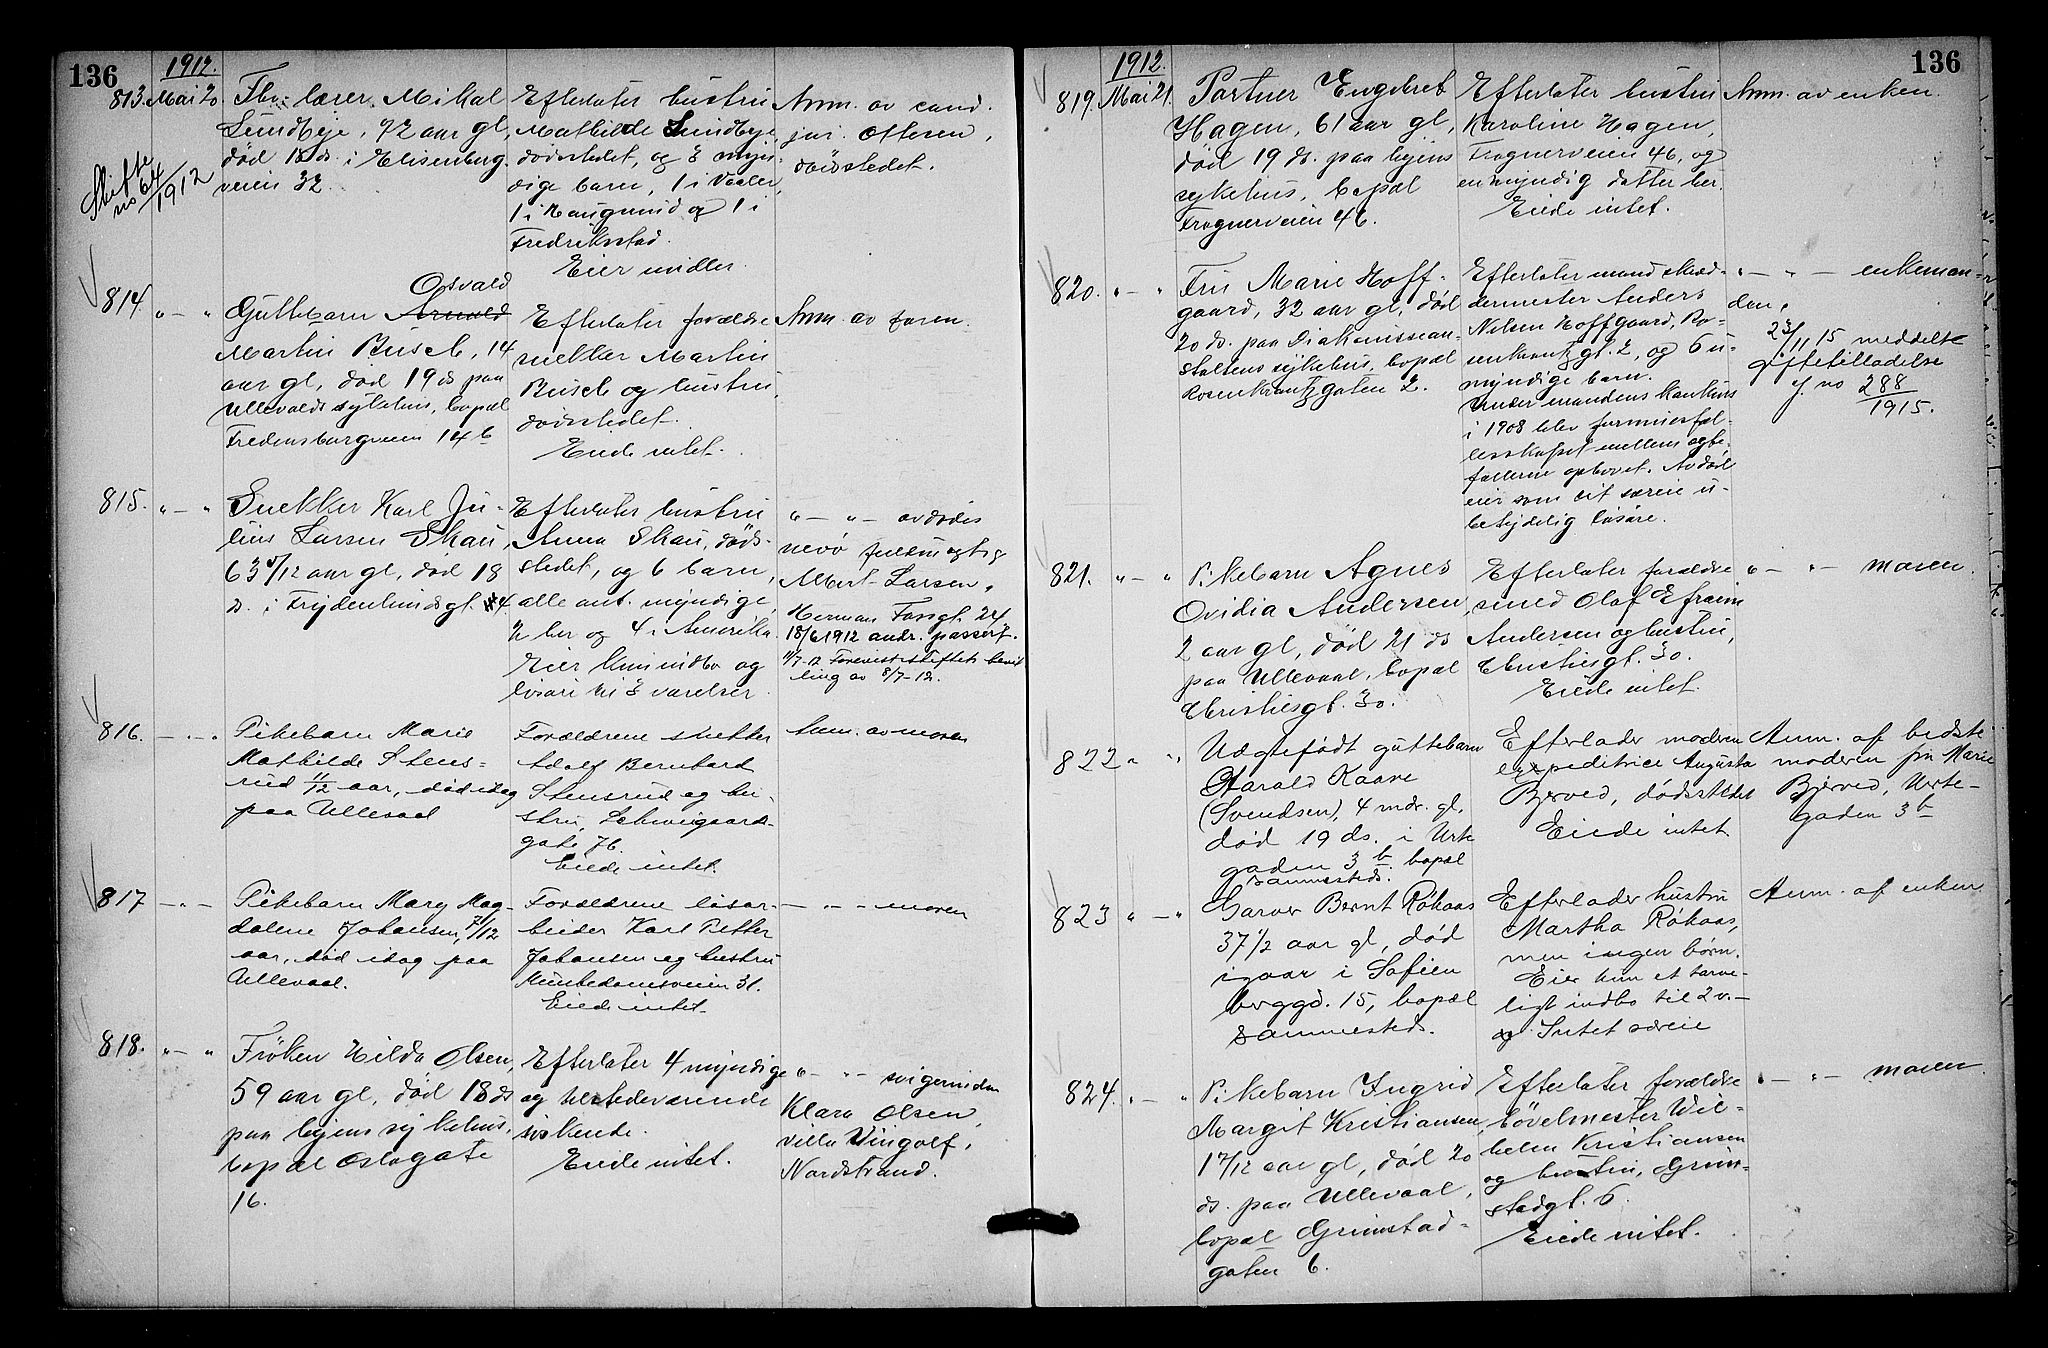 136
1912.
813. Mai 20
Fhv. lærer Mikal
Sundbye, 72 aar gl,
død 18 ds. i Elisenberg
veien 32.
Efterlater hustru
Mathilde Sundbye
dødsstedet, og 3 myn
dige barn, 1 i Vaaler,
1 i Haugesund og 1 i
Fredriksstad.
Eier midler.
Anm. av cand.
jur. Ottesen,
dødsstedet.
Skifte
no 64/1912
814. " — "
Osvald
Guttebarn Arnold
Martin Busch, 14
aar gl, død 19 ds paa
Ullevolds sykehus, bopæl
Fredensborgveien 14 b
Efterlater forældre
snekker Martin
Busch og hustru,
dødsstedet.
Eiede intet.
Anm. av faren.
815. " — "
Snekker Karl Ju-
lius Larsen Skau,
63 5/12 aar gl, død 18
ds. i Frydenlundsgt. 4
Efterlater hustru
Anna Skau, døds-
stedet, og 6 barn,
alle ant. myndige,
2 her og 4 i Amerika
Eier kun indbo og
løsøre til 3 værelser.
" — " — avdødes
nevø fuldmægtig
Albert Larsen,
Herman Fossgt. 24
18/6 1912 andr. passerf.
11/7-12 Forevist skiftets bevil
ling av 8/7-12.
816. — " — "
Pikebarn Marie
Mathilde Stens-
rud 11/12 aar, død idag
paa Ullevaal
Forældrene snekker
Adolf Bernhard
Stensrud og hu-
stru, Schweigaards-
gate 76.
Eiede intet.
Anm. av moren
817 — " —
Pikebarn Mary Mag-
dalene Johansen, 7/12
aar, død idag paa
Ullevaal.
Forældrene løsar-
beider Karl Petter
Johansen og hustru
Munkedamsveien 31.
Eiede intet.
— " — moren
818. " — "
Frøken Hilda Olsen,
59 aar gl, død 18 ds
paa byens sykehus,
bopæl Oslogate
16.
Efterlater 4 myndige
og tilstedeværende
søskende.
Eiede intet.
" — " — svigerinden
Klara Olsen,
villa Vingolf,
Nordstrand.
1912.
136
819. Mai 21.
Portner Engebret
Hagen, 61 aar gl,
død 19 ds. paa byens
sykehus, bopæl
Frognerveien 46.
Efterlater hustru
Karoline Hagen,
Frognerveien 46, og
en myndig datter her.
Eiede intet.
Anm. av enken.
820. " — "
Fru Marie Hoff-
gaard, 32 aar gl, død
20 ds. paa Diakonissean-
staltens sykehus, bopæl
Rosenkrantzgaten 2.
Efterlater mand skræd-
dermester Anders
Nilsen Hoffgaard, Ro-
senkrantzgt. 2, og 6 u-
myndige barn.
Under mandens konkurs
i 1908 blev formuesfæl-
lesskapet mellem ægte-
fællerne ophævet. Avdøde
eier som sit særeie u-
betydelig løsøre.
" — " — enkeman-
den.
23/11 15 meddelt
giftetilladelse
j. no 288/1915.
821. " — "
Pikebarn Agnes
Ovidia Andersen,
2 aar gl, død 21 ds
paa Ullevaal, bopæl
Christiesgt. 30.
Efterlater forældre
smed Olaf Efraim
Andersen og hustru,
Christiesgt. 30.
Eiede intet.
" — " — moren.
822 " "
Uægtefødt guttebarn
Harald Kaare
(Svendsen), 4 mdr. gl,
død 19 ds. i Urte
gaden 3 b. bopæl
sammesteds.
Efterlader moderen
expeditrice Augusta
Bjerved, dødsstedet
Eiede intet
Anm. af bedste
moderen fru Marie
Bjerved, Urte-
gaden 3 b
823 " — "
Garver Bernt Røkaas
37 1/2 aar gl, død
igaar i Sofien
berggd. 15, bopæl
sammesteds.
Efterlader hustru
Martha Røkaas,
men ingen børn.
Eier kun et tarve-
ligt indbo til 2 v. —
og Intet særeie
Anm. af enken
824. " — "
Pikebarn Ingrid
Margit Kristiansen,
1 7/12 aar gl, død 20
ds. paa Ullevaal,
bopæl Grimstad-
gaten 6.
Efterlater forældre
høvelmester Wil-
helm Kristiansen
og hustru, Grim-
stadgt. 6.
Eiede intet.
" — " — moren.